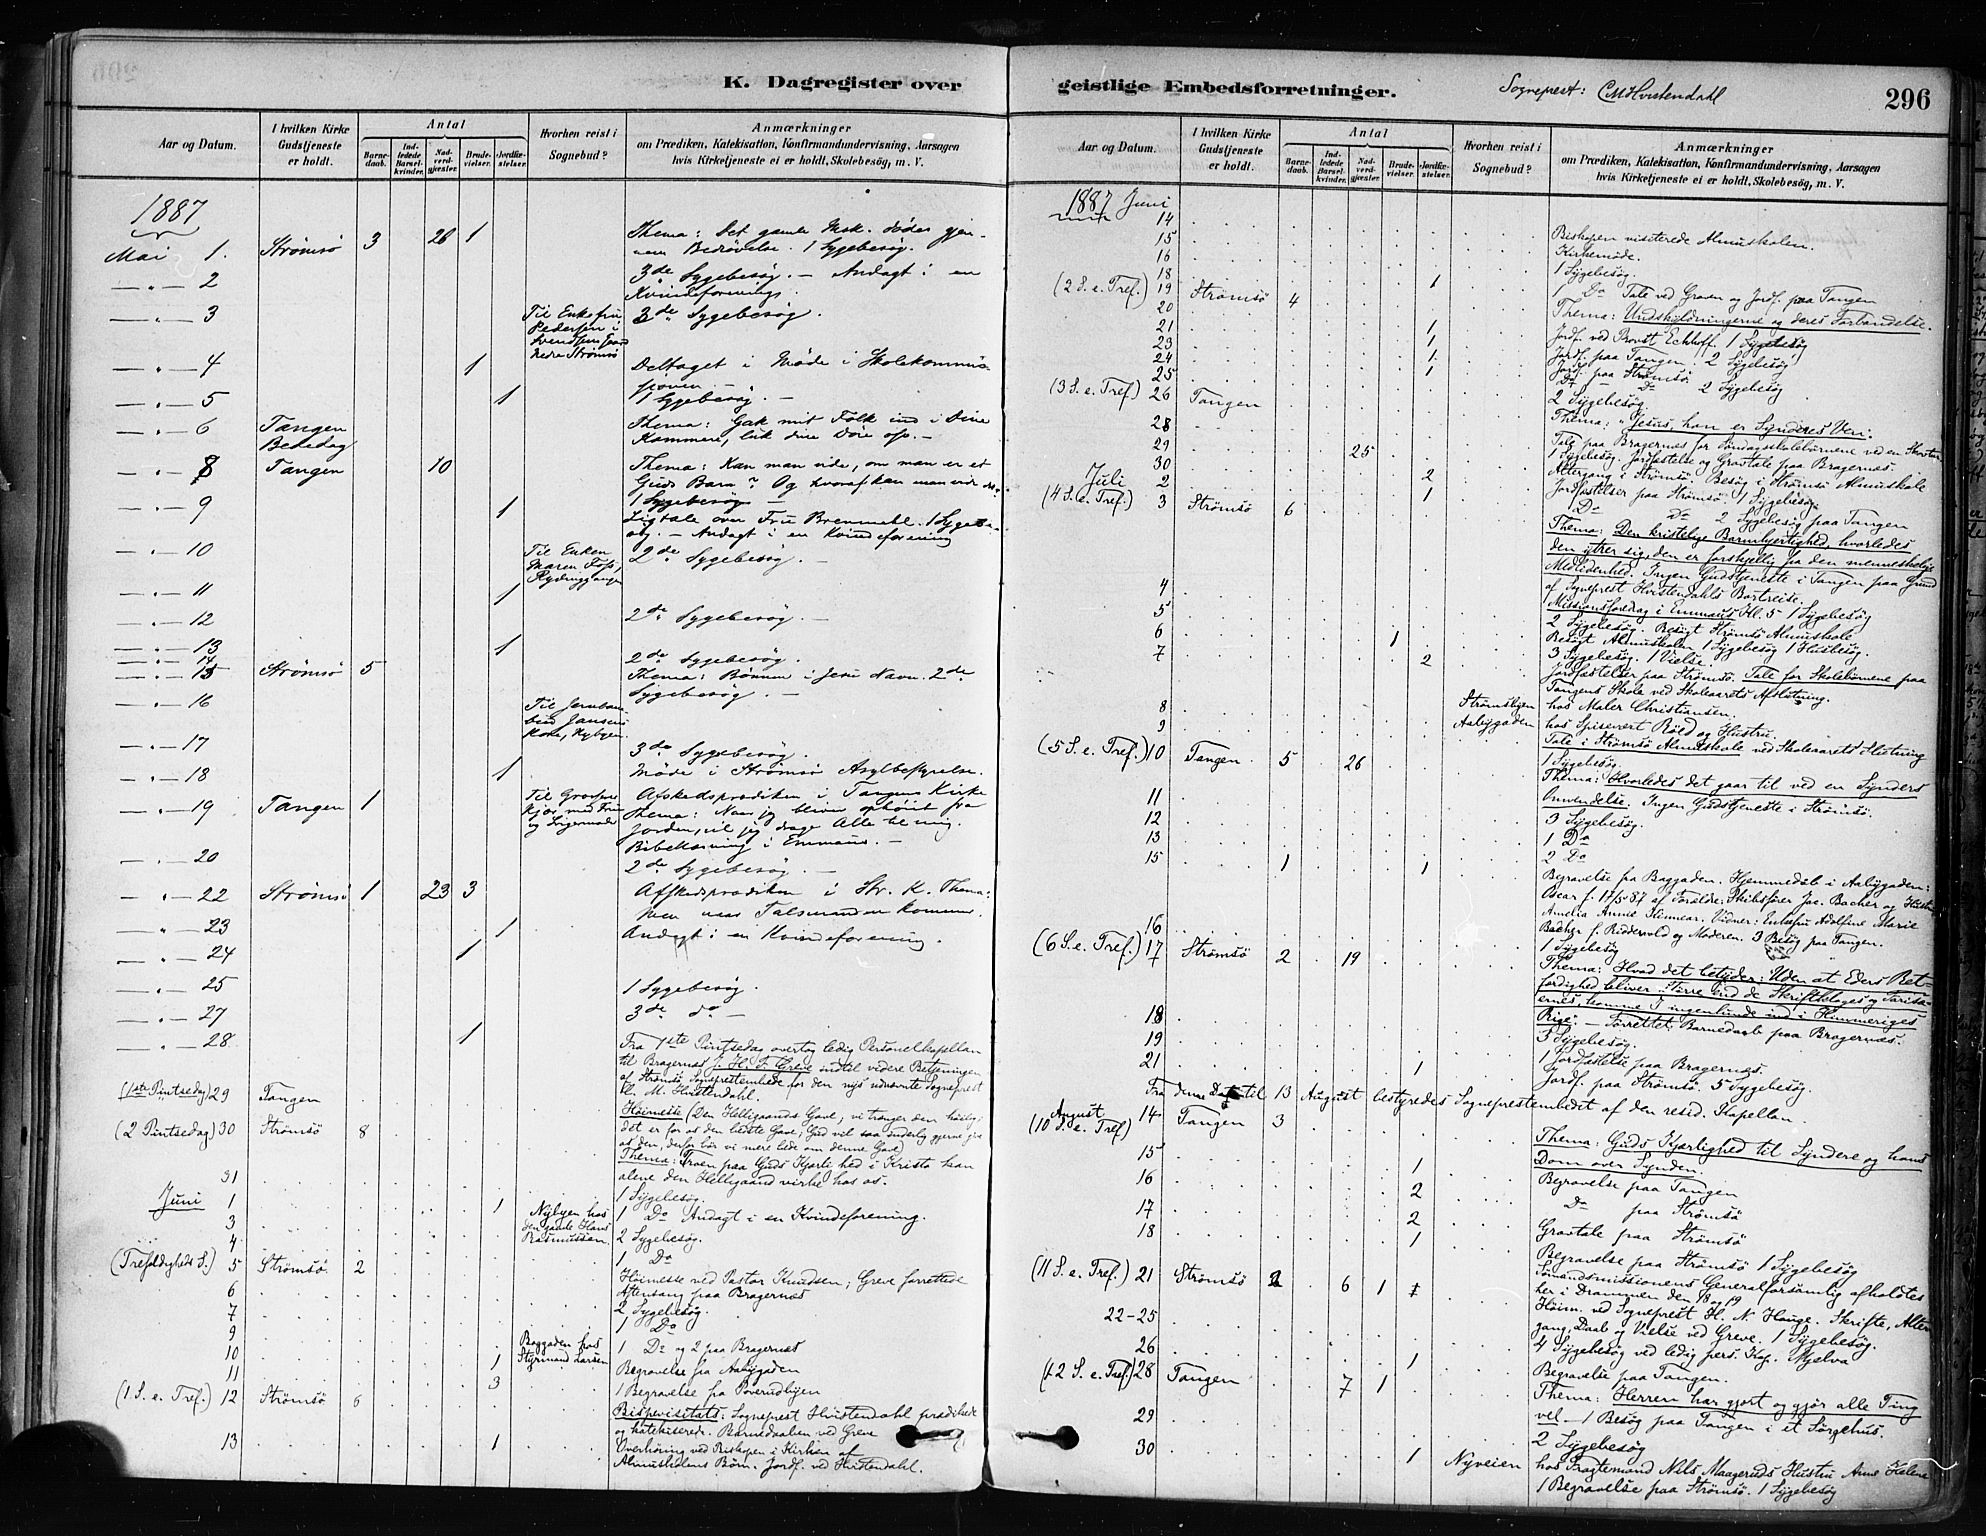 K. Dagregister over
Aar og Datum.
I hvilken Kirke Gudstjeneste er holdt.
Antal
Barnedaab.
Indledede Barselkvinder.
Nadverdgjester.
Brudevielser.
Jordfæstelser.
Hvorhen reist i Sognebud?
Anmærkninger
om Prædiken, Katekisation, Konfirmandundervisning, Aarsagen
hvis Kirketjeneste ei er holdt, Skolebesög, m. V.
1887
Mai 1. Strömsö 3 26 1 Thema: Det gamle Msk. dödes gjen-
nem Bedrövelse. 1 Sygebesög.
2 3de Sygebesög. — Andagt i en
Kvindeforening.
3 Til Enkefru 3de Sygebesög.
Pedersen i
Nedre Strömsö
4 1 Deltaget i Möde i Skolekommis-
sionen. —
5 1 1 Sygebesög. —
6 Tangen Thema: Gak mit Folk ind i dine
Bededag Kammere, luk dine Döre osv. —
8 Tangen 10 Thema: Kan man vide, om man er et
Guds Barn? Og hvoraf kan man vide det?
1 Sygebesög —
9 1 Ligtale over Fru Bremmehl. 1 Sygebe-
sög. — Andagt i en Kvindeforening
10 Til Enken 2de Sygebesög. —
Maren Foss,
11 1
12 2de Sygebesög. —
13 1
14 2de Sygebesög.
15 Strömsö 5 Thema: Bönnen i Jesu Navn. 2de
Sygebesög. —
16 Til Jernban-
Jansens
Kone, Nybyen
17 3de Sygebesög.
18 1 Möde i Strömsö Asylbestyrelse.
19 Tangen 1 Afskedsprædiken i Tangens Kirke
Thema: Naar jeg bliver ophöiet fra
Jorden, vil jeg drage Alle til mig.
Bibellæsning i Emmaus. —
20 2de Sygebesög. —
22 Strömsö 1 23 3 Afskedsprædiken i Str. K. Thema:
Men naar Talsmanden kommer.
23 1 Andagt i en Kvindeforening.
24 1
25 1 Sygebesög.
27 3de do —
28 1
Fra 1ste Pintsedag overtog ledig Personelkapellan
til Bragernæs J. H. F. Greve indtil videre Betjeningen
af Strömsö Sogneprestembede for den nys udnævnte Sogneprest
C. M. Hvistendahl.
(1ste Pintsedag) 29 Tangen Höimesse (Den Helligaands Gave, vi trænger den höilig;
(2 Pintsedag) 30 Strömsö 8 det er for os den bedste Gave, Gud vil saa inderlig gjerne give
os den, derfor bör vi mere bede om denne Gave)
Thema: Troen paa Guds Kjærlihed i Kristo kan
alene den Helligaand virke hos os.
31 1 Sygebesög.
Juni 1 1 Nybyen hos 1 Do Andagt i en Kvindeforening.
3 den gamle Hans 2 Sygebesög.
4 Rasmussen. 1 Do
(Trefoldigheds S.) 5 Strömsö. 2 Höimesse ved Pastor Knudsen; Greve forrettede
Aftensang paa Bragernæs
6 2 Sygebesög.
7 1 Do
9 Baggaden hos 1 Do og 2 paa Bragernæs
10 1 Styrmand Larsen Begravelse fra Aabygaden
11 3 1 Begravelse fra Poverudbyen
(1. S. e. Tref.) 12 Strömsö 6 Bispevisitats: Sogneprest Hvistendahl prædikede
og katekiserede. Barnedaaben ved Greve
13 1 Overhöring ved Biskopen i Kirken af
Almueskolens Börn. Jordf. ved Hvistendahl.
geistlige Embedsforretninger.
Sogneprest: C M Hvistendahl
296
Aar og Datum.
I hvilken Kirke Gudstjeneste er holdt.
Antal
Barnedaab.
Indledede Barselkvinder.
Nadverdgjester.
Brudevielser.
Jordfæstelser.
Hvorhen reist i Sognebud?
Anmærkninger
om Prædiken, Katekisation, Konfirmandundervisning, Aarsagen
hvis Kirketjeneste ei er holdt, Skolebesög, m. V.
1887 Juni
14 Biskopen visiterede Almueskolen.
15 Kirkemöde.
16 1 Sygebesög.
18 1 1 Do Tale ved Graven og Jordf. paa Tangen
(2 S. e. Tref.) 19 Strömsö 4 Thema: Undskyldningerne og deres Forbandelse.
20 1 Jordf. ved Provst Eckhoff. 1 Sygebesög
21 1 Jordf. paa Tangen. 2 Sygebesög
23 1 Jordf. paa Strömsö
24 1 Do — Do 2 Sygebesög
25 2 Sygebesög
(3 S. e. Tref.) 26 Tangen Thema: "Jesus, han er Synderes Ven.
28 Tale paa Bragernæs for Söndagsskolebörnene
29 25 1 Sygebesög. Jordfæstelse og Gravtale paa Bragernæs.
30 Altergang i Strömsö. Besög i Strömsö Almueskole
Juli 2 2 Jordfæstelser paa Strömsö 1 Sygebesög
(4 S. e. Tref.) 3 Strömsö 6 1 Do Do 2 Sygebesög paa Tangen
Thema: Den kristelige Barmhjertighed, hvorledes
den ytrer sig, den er forskjellig fra den menneskelige
Medlidenhed. Ingen Gudstjeneste i Tangen paa Grund
af Sogneprest Hvistendahls Bortreise.
4 Missionsforedrag i Emmaus Kl. 5 1 Sygebesög
5 2 Sygebesög. Besögt Strömsö Almueskole
6 1 Besögt Almueskolen 1 Sygebesög 1 Husbesög.
7 2 3 Sygebesög. 1 Vielse.
Jordfæstelser paa Strömsö. Tale for Skolebörnene paa
Tangens Skole ved Skoleaarets Afslutning.
8 Strömsbyen hos Maler Christiansen.
9 Aabygaden hos Spisevært Röed og Hustru.
(5 S. e. Tref.) 10 Tangen. 5 26 Tale i Strömsö Almueskole ved Skoleaarets Slutning
1 Sygebesög.
Thema: Hvorledes det gaar til ved en Synders
11 Omvendelse. Ingen Gudstjeneste i Strömsö.
12 3 Sygebesög.
13 1 Do
15 1 1 2 Do
Begravelse fra Baggaden. Hjemmedaab i Aabygaden:
Oscar f. 17/5 87 af Forældre: Skibsförer Jac. Bacher og Hustru
Amelia Annie Vidner: Enkefru Adolfine Marie
16 Bacher f. Ridderвold og Moderen. 3 Besög paa Tangen.
(6 S. e. Tref.) 17 Strömsö 2 19 1 Sygebesög
Thema: Hvad det betyder: Uden at Eders Ret-
færdighed bliver större end de Skriftkloges og Farisæ-
ernes, komme I ingenlunde ind i Himmeriges
18 Rige. — Forrettet Barnedaab paa Bragernæs.
19 3 Sygebesög.
21 1 1 Jordfæstelse paa Bragernæs.
Jordf. paa Strömsö. 5 Sygebesög.
Fra denne Dato til 13 August bestyredes Sogneprestembedet af den resid. Kapellan.
August
(10 S. e. Tref) 14 Tangen 3 Thema: Guds Kjærlighed til Syndere og hans
15 1 Dom over Synden.
16 2 Begravelse paa Tangen
17 2 Do paa Strömsö
18 1 Gravtale paa Strömsö
Begravelse paa Strömsö 1 Sygebesög
(11 S. e. Tref.) 21 Strömsö 2 6 1 Sömandsmissionens Generalforsamling afholdtes
her i Drammen den 18 og 19
22-25 Höim. ved Sogneprest H. N. Hauge. Skrifte, Alter-
gang, Daab og Vielse ved Greve. 1 Sygebesög.
26 1 4 Sygebesög ved ledig pers. Kap. Mjelva
(12 S. e. Tref.) 28 Tangen 7 1 Begravelse paa Tangen.
Thema: Herren har gjort og gjör alle Ting
29 vel — 1 Besög paa Tangen i et Sörgehus.
30 1 2 Sygebesög
Nyveien hos Fragtemand Nils Maageruds Hustru Anne Helene
1 Begravelse paa Strömsö. 1 Sygebesög